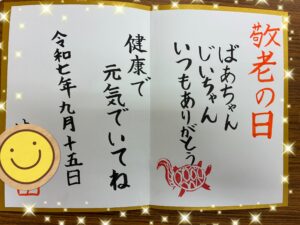 敬老の日
ばあちゃん
じいちゃん
いつもありがとう
健康で
元気でいてね
令和七年九月十五日